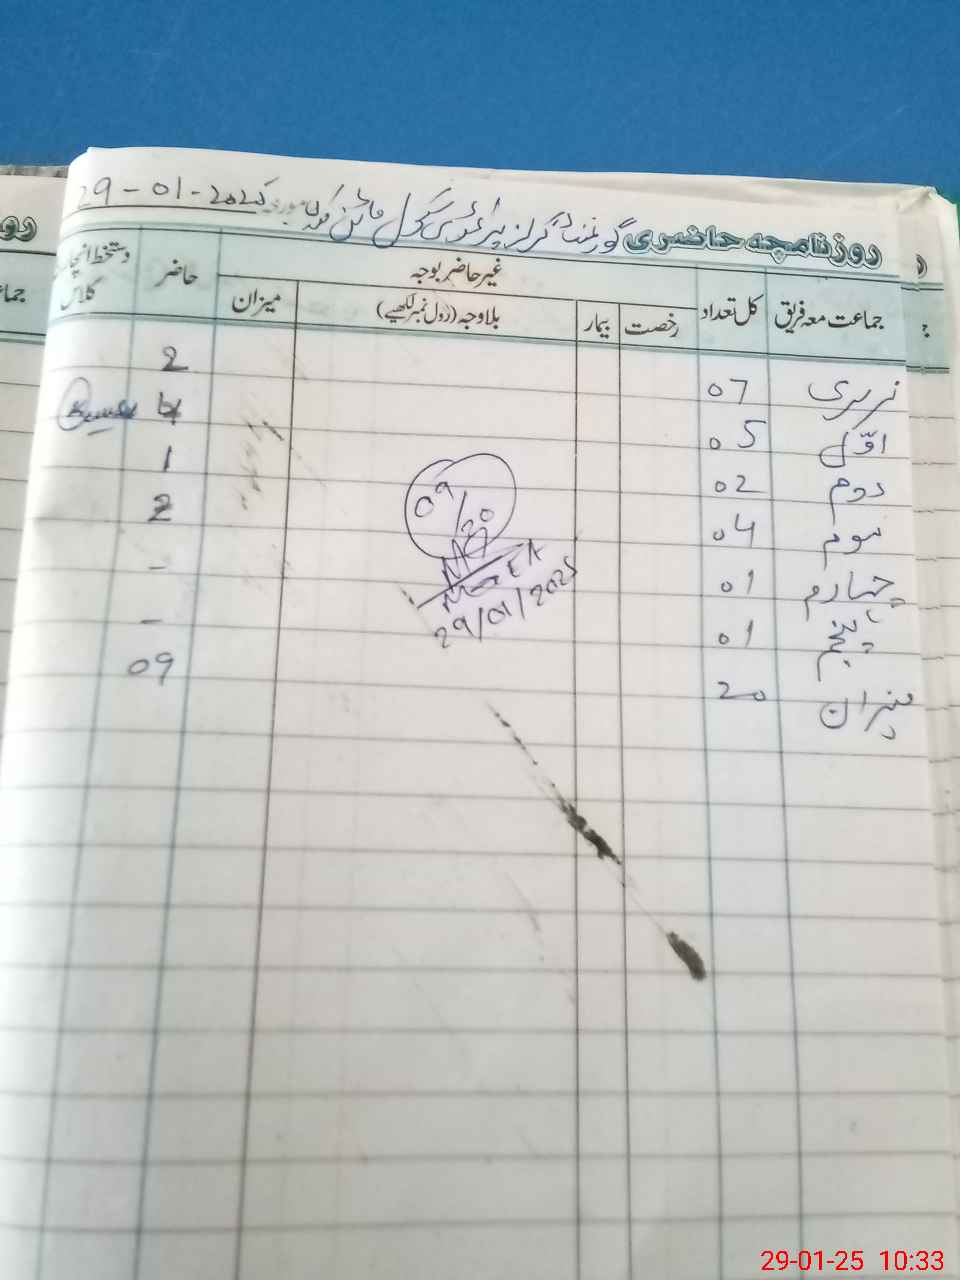 روزنامچہ حاضری گورنمنٹ گرلز پرائمری سکول مائن مورخہ 29-01-2025
جماعت معہ فریق کل تعداد غیر حاضر بوجہ حاضر دستخط انچارج کلاس
رخصت بیمار بلاوجہ (رول نمبر لکھیے) میزان
نرسری 07 2
اوّل 05 4
دوم 02 1
سوم 04 2
چہارم 01 -
پنجم 01 -
میزان 20 09
09/20
MEA
29/01/2025
رو
جما
29-01-25 10:33